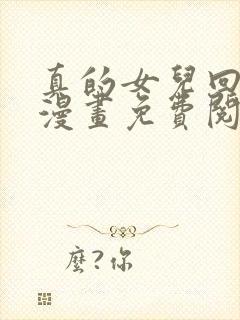 真的女兒回
漫畫免費閱
麼?你